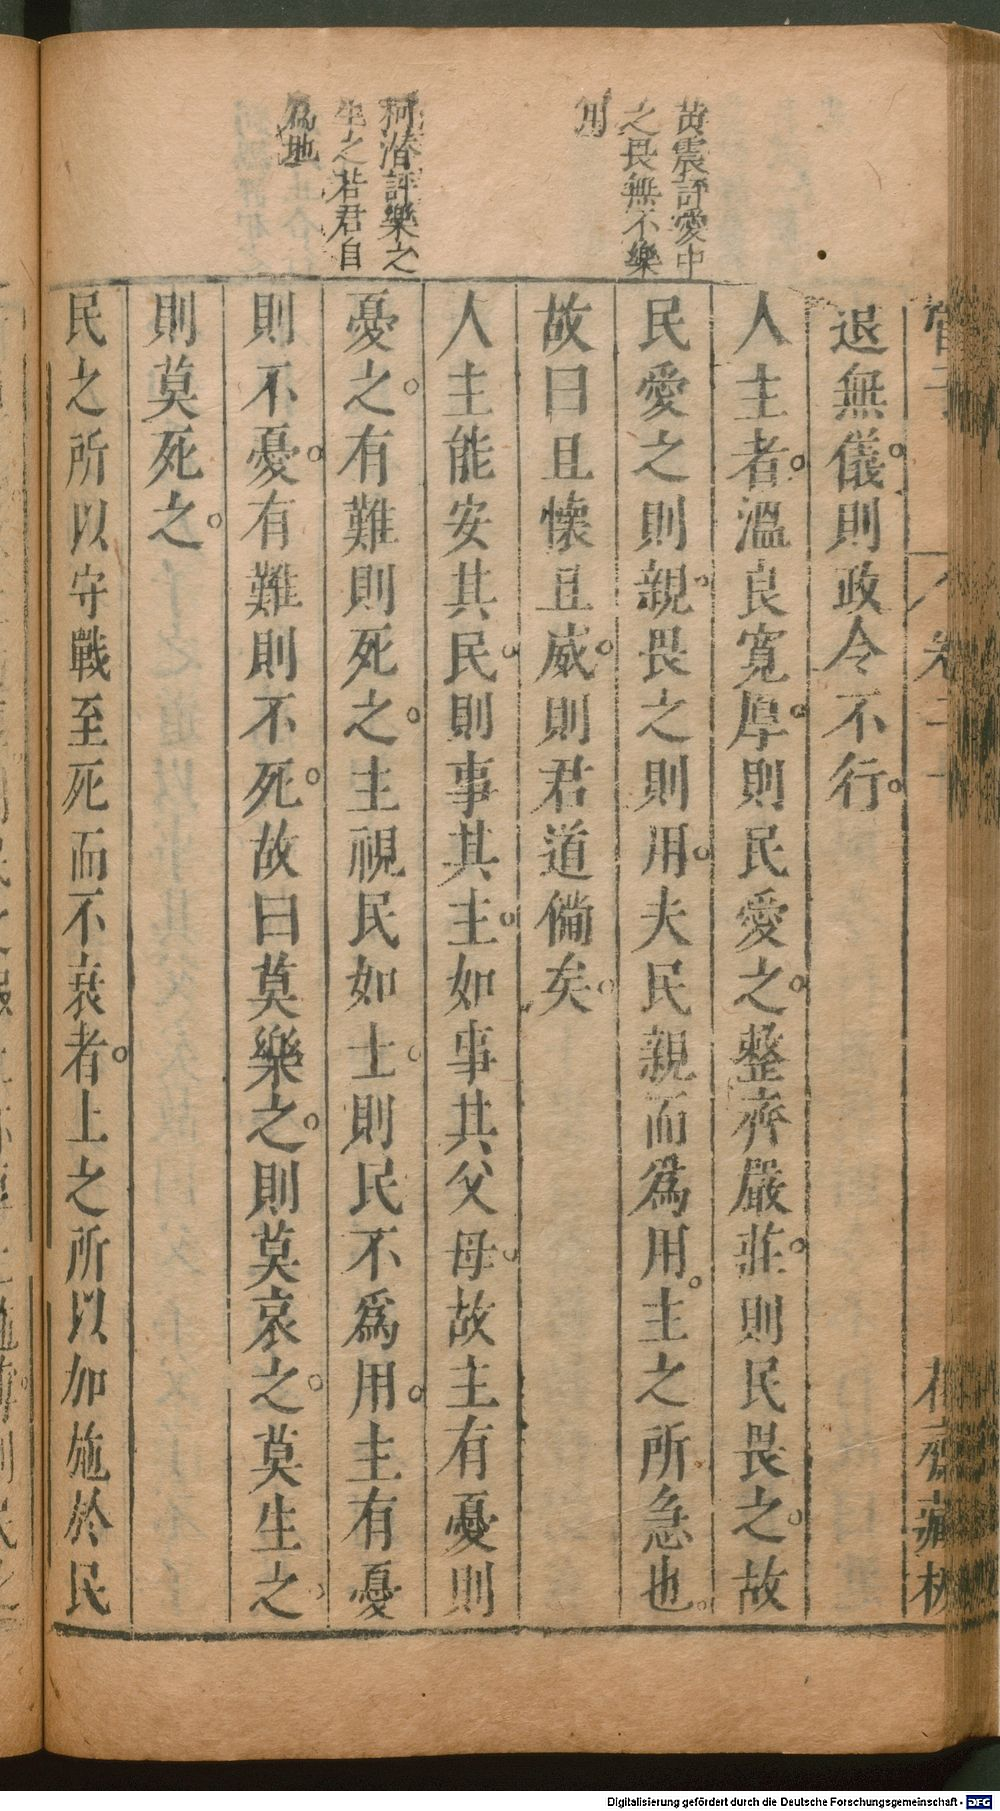 黄震評愛中
之畏無不樂
用
柯潜評樂之
生之若君自
為地
退無儀則政令不行
人主者溫良寬厚則民愛之整齊嚴莊則民畏之故
民愛之則親畏之則用夫民親而為用主之所急也
故曰且懷且威則君道備矣
人主能安其民則事其主如事其父母故主有憂則
憂之有難則死之主視民如土則民不為用主有憂
則不憂有難則不死故曰莫樂之則莫哀之莫生之
則莫死之
民之所以守戰至死而不衰者上之所以加施於民
Digitalisierung gefördert durch die Deutsche Forschungsgemeinschaft - DFG